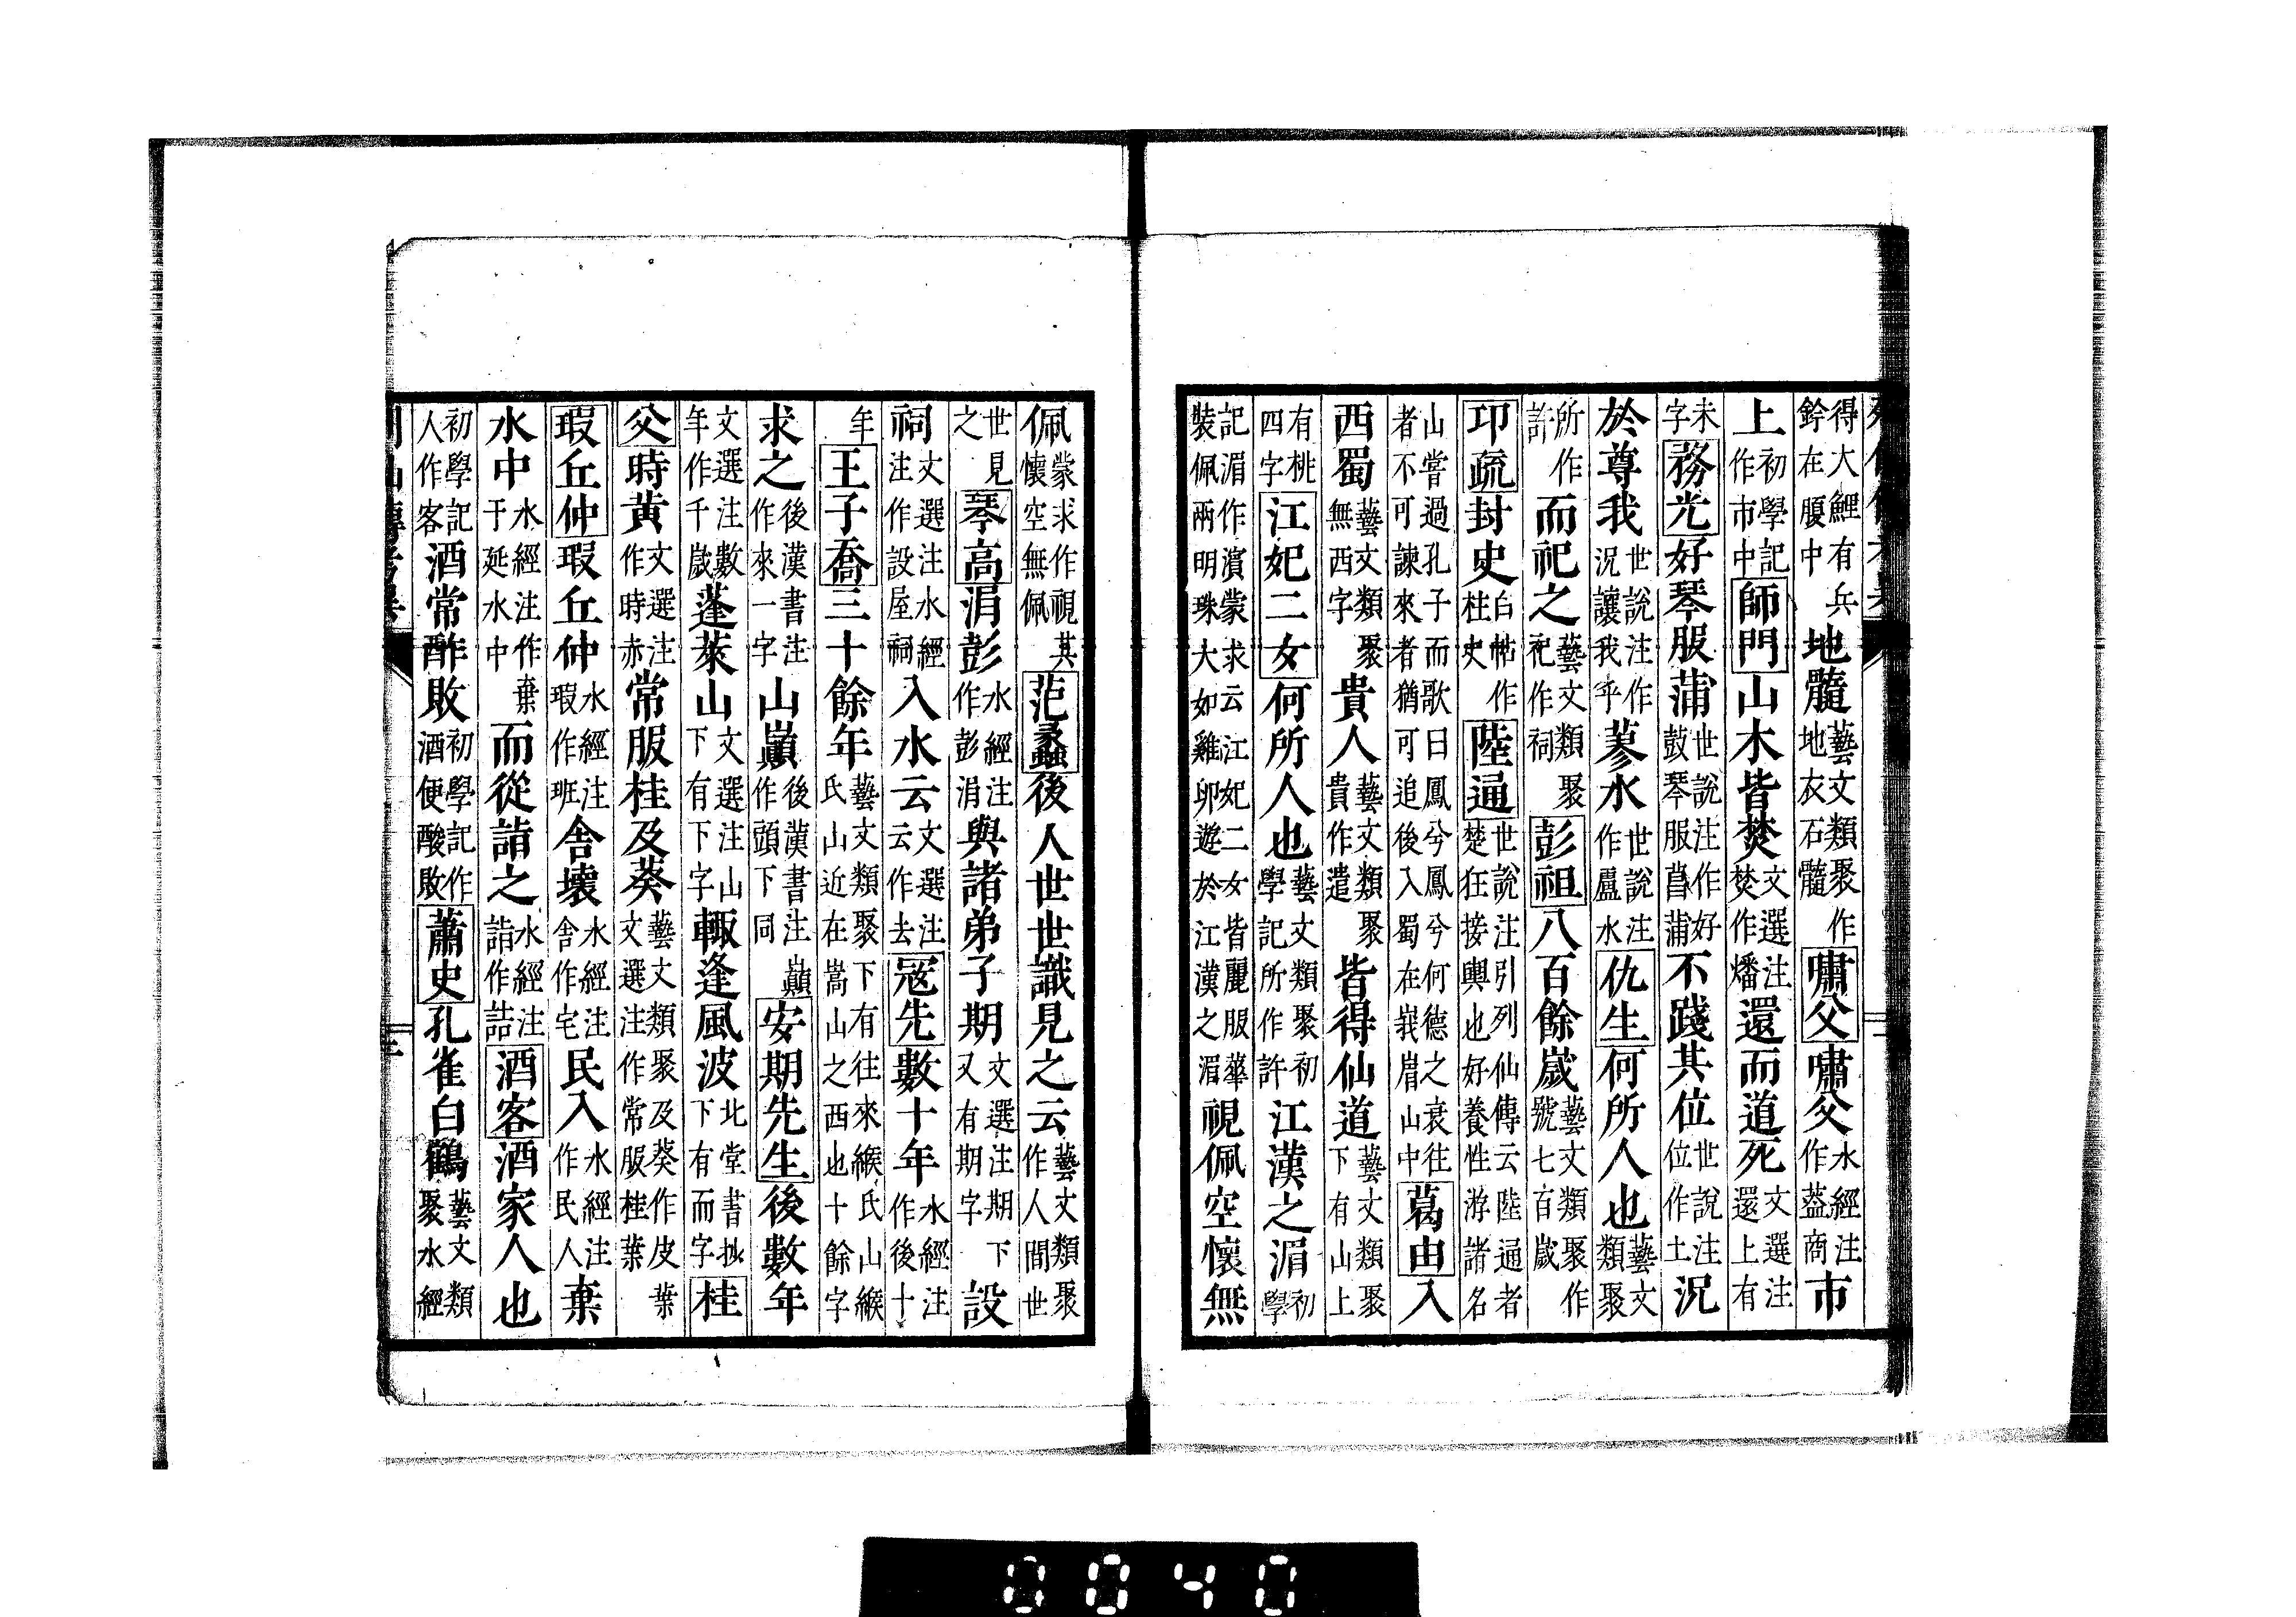 得大鯉有兵鈐在腹中地髓藝文類聚作地衣石髓嘯父嘯父水經注作葢商市
上初學記作市中師門山木皆焚文選注焚作燔還而道死文選注還上有
未字務光好琴服蒲世說注作好鼓琴服菖蒲不踐其位世說注位作土況
於尊我世說注作況讓我乎蓼水世說注作盧水仇生何所人也藝文類聚
所作許而祀之藝文類聚祀作祠彭祖八百餘歲藝文類聚作號七百歲
卭疏封史白帖作柱史陸通世說注引列仙傳云陸通者楚狂接輿也好養性游諸名
山嘗過孔子而歌曰鳳兮鳳兮何德之衰往者不可諫來者猶可追後入蜀在峩眉山中葛由入
西蜀藝文類聚無西字貴人藝文類聚貴作遣皆得仙道藝文類聚下有山上
有桃四字江妃二女何所人也藝文類聚初學記所作許江漢之湄初學
記湄作濱蒙求云江妃二女皆麗服華裝佩兩明珠大如雞卵遊於江漢之湄視佩空懷無
佩蒙求作視其懷空無佩范蠡後人世世識見之云藝文類聚作人間世
世見之琴高涓彭水經注作彭涓與諸弟子期文選注期下又有期字設
祠文選注水經注作設屋祠入水云文選注云作去寇先數十年水經注作後十
年王子喬三十餘年藝文類聚下有往來緱氏山緱氏山近在嵩山之西也十餘字
求之後漢書注作來一字山巔後漢書注巔作頭下同安期先生後數年
文選注數年作千歲蓬萊山文選注山下有下字輒逢風波北堂書抄下有而字桂
父時黃文選注作時赤常服桂及葵藝文類聚及葵作皮葉文選注作常服桂葉
瑕丘仲瑕丘仲水經注瑕作班舍壞水經注舍作宅民入水經注作民人棄
水中水經注作棄于延水中而從詣之水經注詣作詰酒客酒家人也
初學記人作客酒常酢敗初學記作酒便酸敗蕭史孔雀白鶴藝文類聚水經